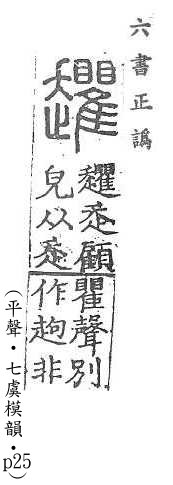 六書正譌
𧾱走顧
皃从走
瞿聲別
作非
(平聲・七虞模韻・p25)